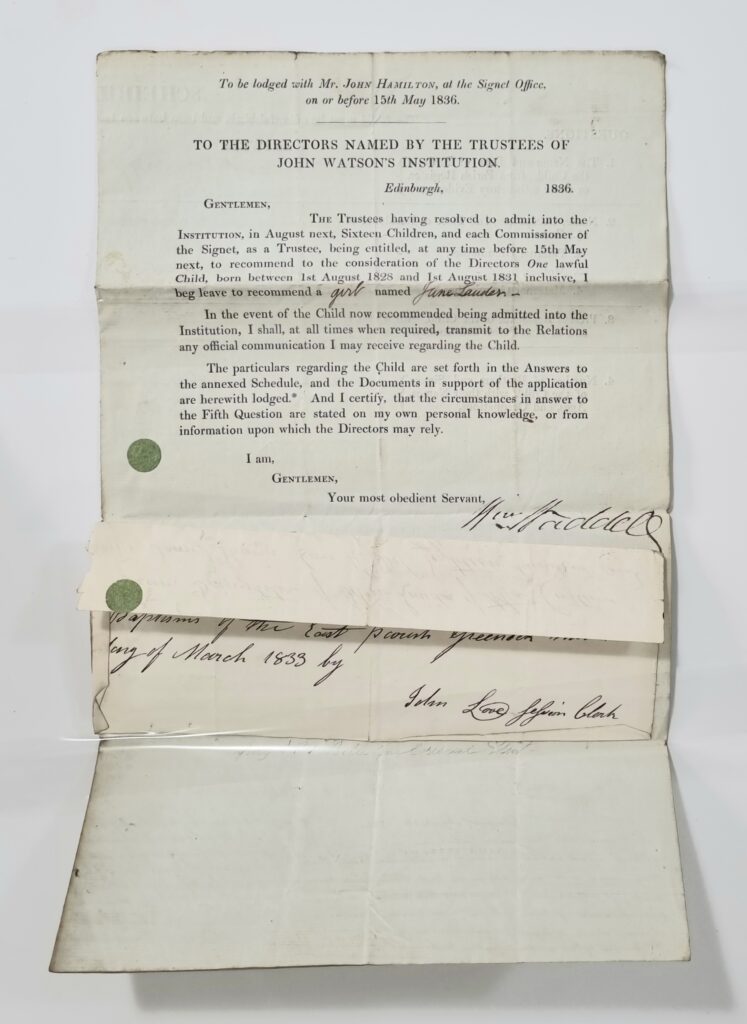 To be lodged with Mr. JOHN HAMILTON, at the Signet Office,
on or before 15th May 1836.
TO THE DIRECTORS NAMED BY THE TRUSTEES OF
JOHN WATSON'S INSTITUTION.
Edinburgh, 1836.
GENTLEMEN,
THE Trustees having resolved to admit into the
INSTITUTION, in August next, Sixteen Children, and each Commissioner of
the Signet, as a Trustee, being entitled, at any time before 15th May
next, to recommend to the consideration of the Directors One lawful
Child, born between 1st August 1828 and 1st August 1831 inclusive, I
beg leave to recommend a girl named Jane Lauder.
In the event of the Child now recommended being admitted into the
Institution, I shall, at all times when required, transmit to the Relations
any official communication I may receive regarding the Child.
The particulars regarding the Child are set forth in the Answers to
the annexed Schedule, and the Documents in support of the application
are herewith lodged.* And I certify, that the circumstances in answer to
the Fifth Question are stated on my own personal knowledge, or from
information upon which the Directors may rely.
I am,
GENTLEMEN,
Your most obedient Servant,
Wm Waddell
Baptisms of the East parish Greenock
day of March 1833 by
John Love Session Clerk